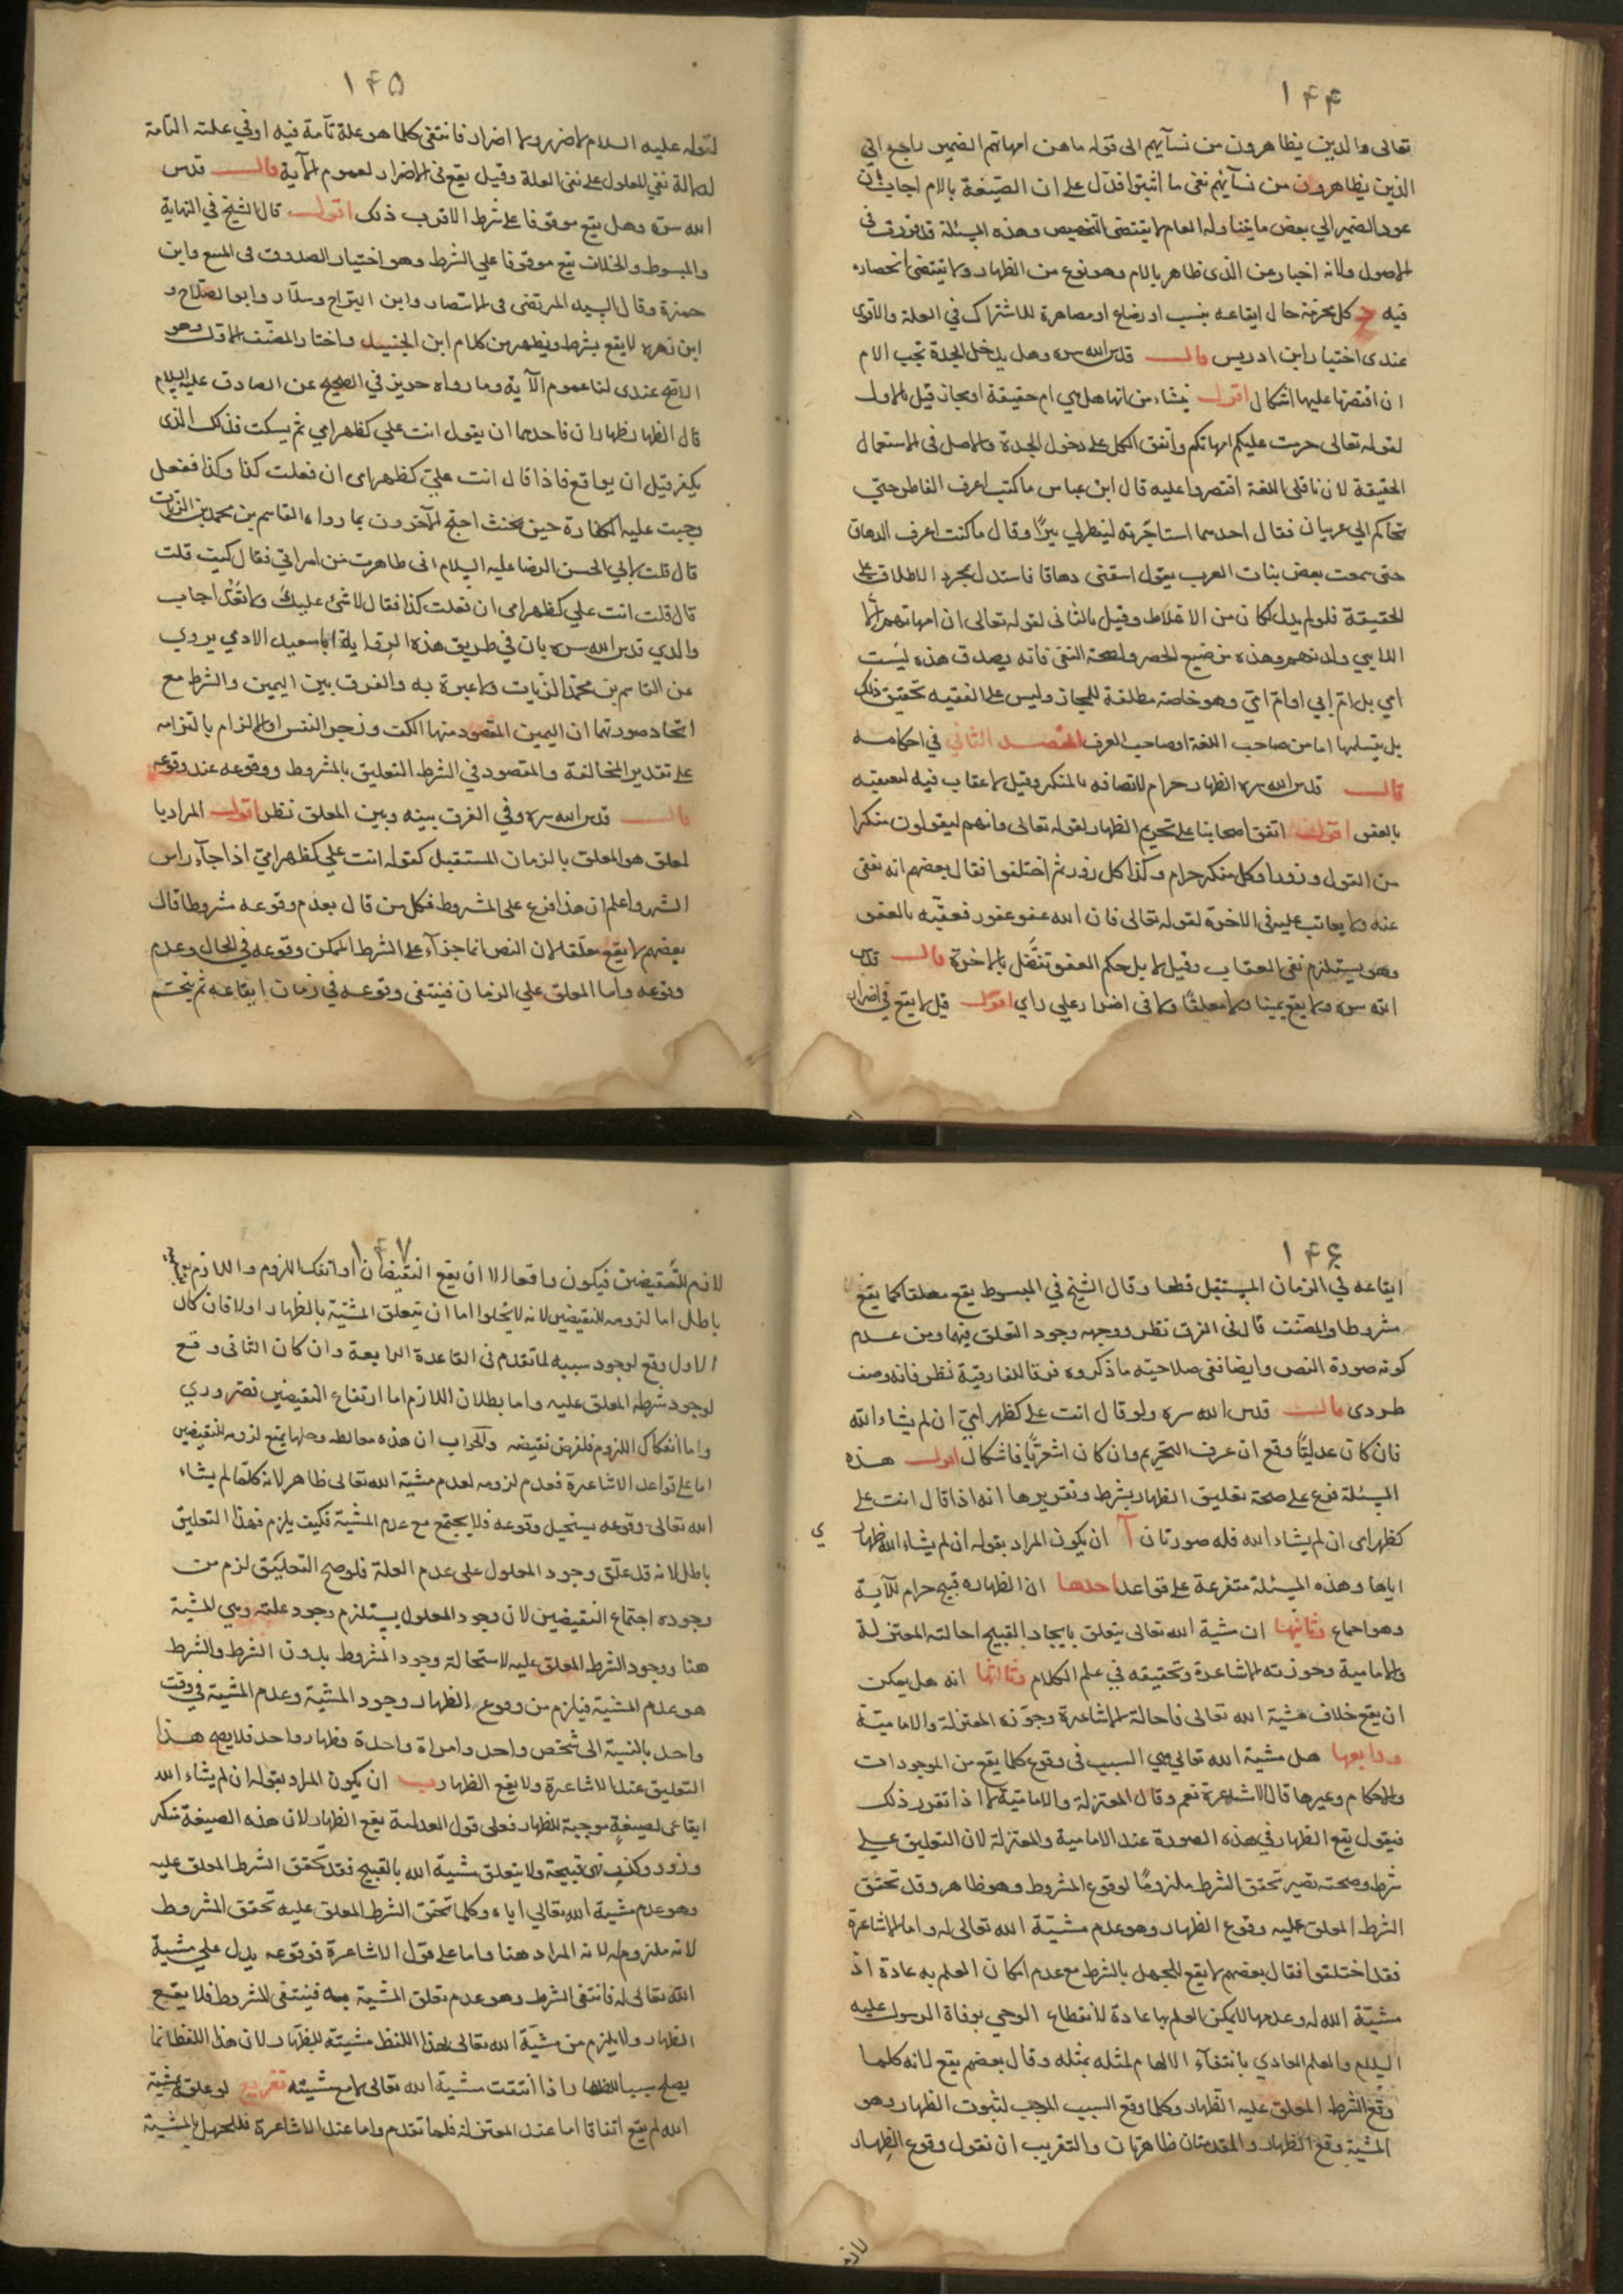 ١۴۴
تعالى والذين يظاهرون من نسآيهم الى قوله ماهن امهاتهم الضمير راجع الى
الذين يظاهرون من نسآئهم نفى ما اثبتوا فدل على ان الصيغة بالام اجاب بان
عود الضمير الي بعض ما يتناوله العام لا يقتضى التخصيص وهذه المسئلة قد تقررت فى
الاصول ولانه اخبار عن الذى ظاهر بالام وهو نوع من الظهار ولا يقتضى انحصاره
فيه كل محرمة حال ايقاعه بنسب او رضاع او مصاهرة للاشتراك في العلة والاقوى
عندى اختيار ابن ادريس قالــ قدس الله سره وهل يدخل الجدة تحت الام
ان اقتصرنا عليها اشكال اقول ينشاء من انها هل هي ام حقيقة او مجاز قيل بالاول
لقوله تعالى حرمت عليكم امهاتكم واتفق الكل على دخول الجدة والاصل فى الاستعمال
الحقيقة لان ناقلى اللغة اقتصروا عليه قال ابن عباس ما كنت اعرف الفاطر حتي
تحاكم الي عربيان فقال احدهما استاجرته ليفطر لي بيرًا وقال ما كنت اعرف الدهاق
حتى سمعت بعض بنات العرب يقول اسقنى دهاقا فاستدل بمجرد الاطلاق على
الحقيقة فلو لم يدل لكان من الاغلاط وقيل بالثانى لقوله تعالى ان امهاتهم الا
اللايي ولدنهم وهذه من صيغ الحصر ولصحة النفى فانه يصدق هذه ليست
امي بل ام ابي او ام امي وهو خاصة مطلقة للمجاز وليس على الفقيه تحقيق ذلك
بل يتسلمها اما من صاحب اللغة او صاحب العرف المقصد الثاني في احكامه
قالــ قدس الله سره الظهار حرام لاتصافه بالمنكر وقيل لا عقاب فيه لتعقيبه
بالعفو اقول اتفق اصحابنا على تحريم الظهار لقوله تعالى وانهم ليقولون منكرا
من القول وزورا وكل منكر حرام وكذا كل زور ثم اختلفوا فقال بعضهم انه نفى
عنه ولا يعاقب عليه فى الاخرة لقوله تعالى فان الله عفو غفور فعقبه بالعفو
وهو يستلزم نفى العقاب وقيل لا بل حكم العفو تفضل بالاخرة قالــ قدس
الله سره ولا يقع يمينا ولا معلقًا ولا فى اضرار على راي اقول قيل لا يقع في اضرار
١۴۵
لقوله عليه السلام لا ضرر ولا اضرار فانتفى كلما هو علة تامة فيه او في علته التامة
لاصالة نفي المعلول على نفى العلة وقيل يقع فى الاضرار لعموم الآية قالــ قدس
الله سره وهل يقع موقوفا على شرط الاقرب ذلك اقول قال الشيخ في النهاية
والمبسوط والخلاف يقع موقوفا علي الشرط وهو اختيار الصدوق فى المقنع وابن
حمزة وقال السيد المرتضى فى الانتصار وابن البراج وسلار وابو الصلاح و
ابن زهره لا يقع بشرط ويظهر من كلام ابن الجنيد واختار المصنف الاول وهو
الاصح عندى لنا عموم الآية وما رواه حريز في الصحيح عن الصادق عليه السلام
قال الظهار ظهاران فاحدهما ان يقول انت علي كظهر امي ثم يسكت فذلك الذى
يكفر قبل ان يواقع فاذا قال انت علي كظهر امى ان فعلت كذا وكذا ففعل
وجبت عليه الكفارة حين يحنث احتج الآخرون بما رواه القاسم بن محمد بن الزيات
قال قلت لابي الحسن الرضا عليه السلام انى ظاهرت من امراتي فقال كيف قلت
قال قلت انت علي كظهر امى ان فعلت كذا فقال لا شئ عليك ولا تعد اجاب
والدي قدس الله سره بان في طريق هذه الرواية ابا سعيد الادمي يروي
عن القاسم بن محمد الزيات ولا عبرة به والفرق بين اليمين والشرط مع
اتحاد صورتهما ان اليمين المقصود منها الكف وزجر النفس او الالزام بالتزامه
على تقدير المخالفة والمقصود في الشرط التعليق بالمشروط ووقوعه عند وقوعه
قالــ قدس الله سره وفي الفرق بينه وبين المعلق نظر اقول المراد با
لمعلق هو المعلق بالزمان المستقبل كقوله انت علي كظهر امي اذا جآء راس
الشهر واعلم ان هذا فرع على المشروط فكل من قال بعدم وقوعه مشروطا قال
بعضهم لا يقع معلقا لان النص انما جآء على الشرط الممكن وقوعه في الحال وعدم
وقوعه واما المعلق علي الزمان فينتفى وقوعه في زمان ايقاعه ثم يتحتم
١۴۶
ايقاعه في الزمان المستقبل قطعا وقال الشيخ في المبسوط يقع معلقا كما يقع
مشروطا والمصنف قال فى الفرق نظر ووجهه وجود التعلق فيهما ومن عدم
كونه صورة النص وايضا نفى صلاحيته ما ذكروه فرقا للفارقية نظر فانه وصف
طردى قالــ قدس الله سره ولو قال انت على كظهر امي ان لم يشاء الله
فان كان عدليًا وقع ان عرف التحريم وان كان اشعريًا فاشكال اقول هذه
المسئلة فرع على صحة تعليق الظهار بشرط وتقريرها انه اذا قال انت على
كظهر امى ان لم يشاء الله فله صورتان آ ان يكون المراد بقوله ان لم يشاء الله ظهار
اياها وهذه المسئلة متفرعة على قواعد احدها ان الظهار قبيح حرام للآية
وهو اجماع وثانيها ان مشية الله تعالى يتعلق بايجاد القبيح احالته المعتزلة
والامامية وجوزته الاشاعرة وتحقيقه في علم الكلام وثالثها انه هل يمكن
ان يقع خلاف مشية الله تعالى فاحالة الاشاعرة وجوزه المعتزلة والامامية
ورابعها هل مشية الله تعالى هي السبب فى وقوع كلما يقع من الموجودات
والاحكام وغيرها قال الاشاعرة نعم وقال المعتزلة والامامية لا اذا تقرر ذلك
فيقول يقع الظهار في هذه الصورة عند الامامية والمعتزلة لان التعليق على
شرط وصحته تصير تحقق الشرط ملزومًا لوقوع المشروط وهو ظاهر وقد تحقق
الشرط المعلق عليه وقوع الظهار وهو عدم مشية الله تعالى له واما الاشاعرة
فقد اختلفوا فقال بعضهم لا يقع للجهل بالشرط مع عدم امكان العلم به عادة اذ
مشية الله له وعدمها لا يمكن العلم بها عادة لانقطاع الوحي بوفاة الرسول عليه
السلام والعلم العادي بانتفآء الالهام لمثله بمثله وقال بعضهم يقع لانه كلما
وقع الشرط المعلق عليه الظهار وكلما وقع السبب الموجب لثبوت الظهار وهو
المشية وقع الظهار والمقدمتان ظاهرتان والتقريب ان نقول وقوع الظهار
لازم
١۴٧
لازم للنقيضين فيكون واقعا الا ان يقع النقيضان او انفك اللزوم واللازم
باطل اما لزومه للنقيضين لانه لا يخلوا اما ان يتعلق المشية بالظهار اولا فان كان
الاول وقع لوجود سببه لما تقدم فى القاعدة الرابعة وان كان الثانى وقع
لوجود شرطه المعلق عليه واما بطلان اللازم اما ارتفاع النقيضين فضروري
واما انفكاك اللزوم فلفرض نقيضه والجواب ان هذه مغالطة وحلها بمنع لزومه للنقيضين
اما على قواعد الاشاعرة فعدم لزومه لعدم مشية الله تعالى ظاهر لانه كلما لم يشاء
الله تعالى وقوعه يستحيل وقوعه فلا يجتمع مع عدم المشية فكيف يلزم فهذا التعليق
باطل لانه قد علق وجود المعلول على عدم العلة فلو صح التعليق لزم من
وجوده اجتماع النقيضين لان وجود المعلول يستلزم وجود علته وهي المشية
هنا ووجود الشرط المعلق عليه لاستحالة وجود المشروط بدون الشرط والشرط
هو عدم المشية فيلزم من وقوع الظهار وجود المشية وعدم المشية في وقت
واحد بالنسبة الى شخص واحد وامراة واحدة وظهار واحد فلا يصح هذا
التعليق عند الاشاعرة ولا يقع الظهار ب ان يكون المراد بقوله ان لم يشاء الله
ايقاعى لصيغة موجبة للظهار فعلى قول العدلية يقع الظهار لان هذه الصيغة منكر
وزور وكذب فهى قبيحة ولا يتعلق مشية الله بالقبيح فقد تحقق الشرط المعلق عليه
وهو عدم مشية الله تعالى اياه وكلما تحقق الشرط المعلق عليه تحقق المشروط
لانه ملزوم له لانه المراد هنا واما على قول الاشاعرة فوقوعه يدل علي مشية
الله تعالى له فانتفى الشرط وهو عدم تعلق المشية به فينتفى المشروط فلا يقع
الظهار ولا يلزم من مشية الله تعالى لهذا اللفظ مشيته للظهار لان هذا اللفظ انما
يصلح سببا للظهار اذا انتفت مشية الله تعالى لا مع مشيته تفريع لو علق بمشية
الله لم يقع اتفاقا اما عند المعتزلة فلما تقدم واما عند الاشاعرة فللجهل بالمشية